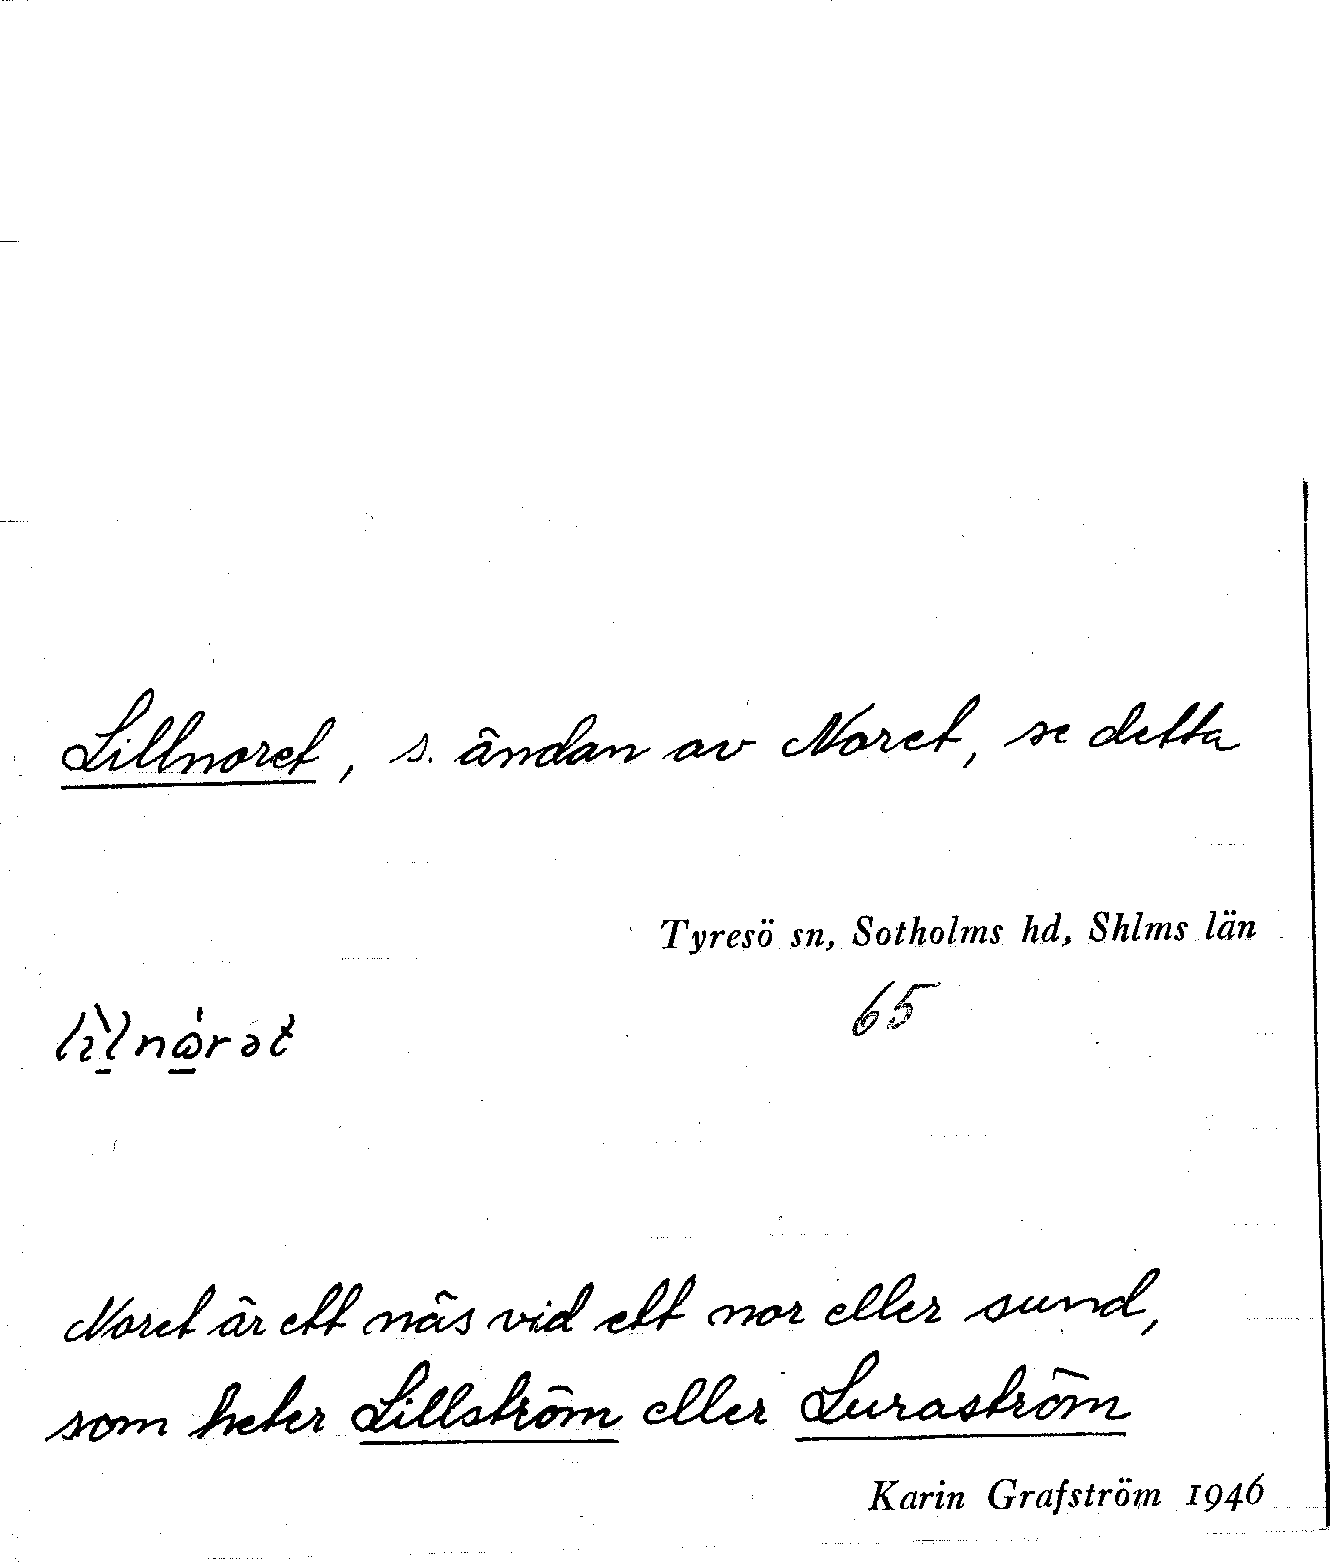 Lillnoret, s. ändan av Noret, se detta
Tyresö sn, Sotholms hd, Shlms län
65
Noret är ett näs vid ett nor eller sund,
som heter Lillström eller Luraström
Karin Grafström 1946